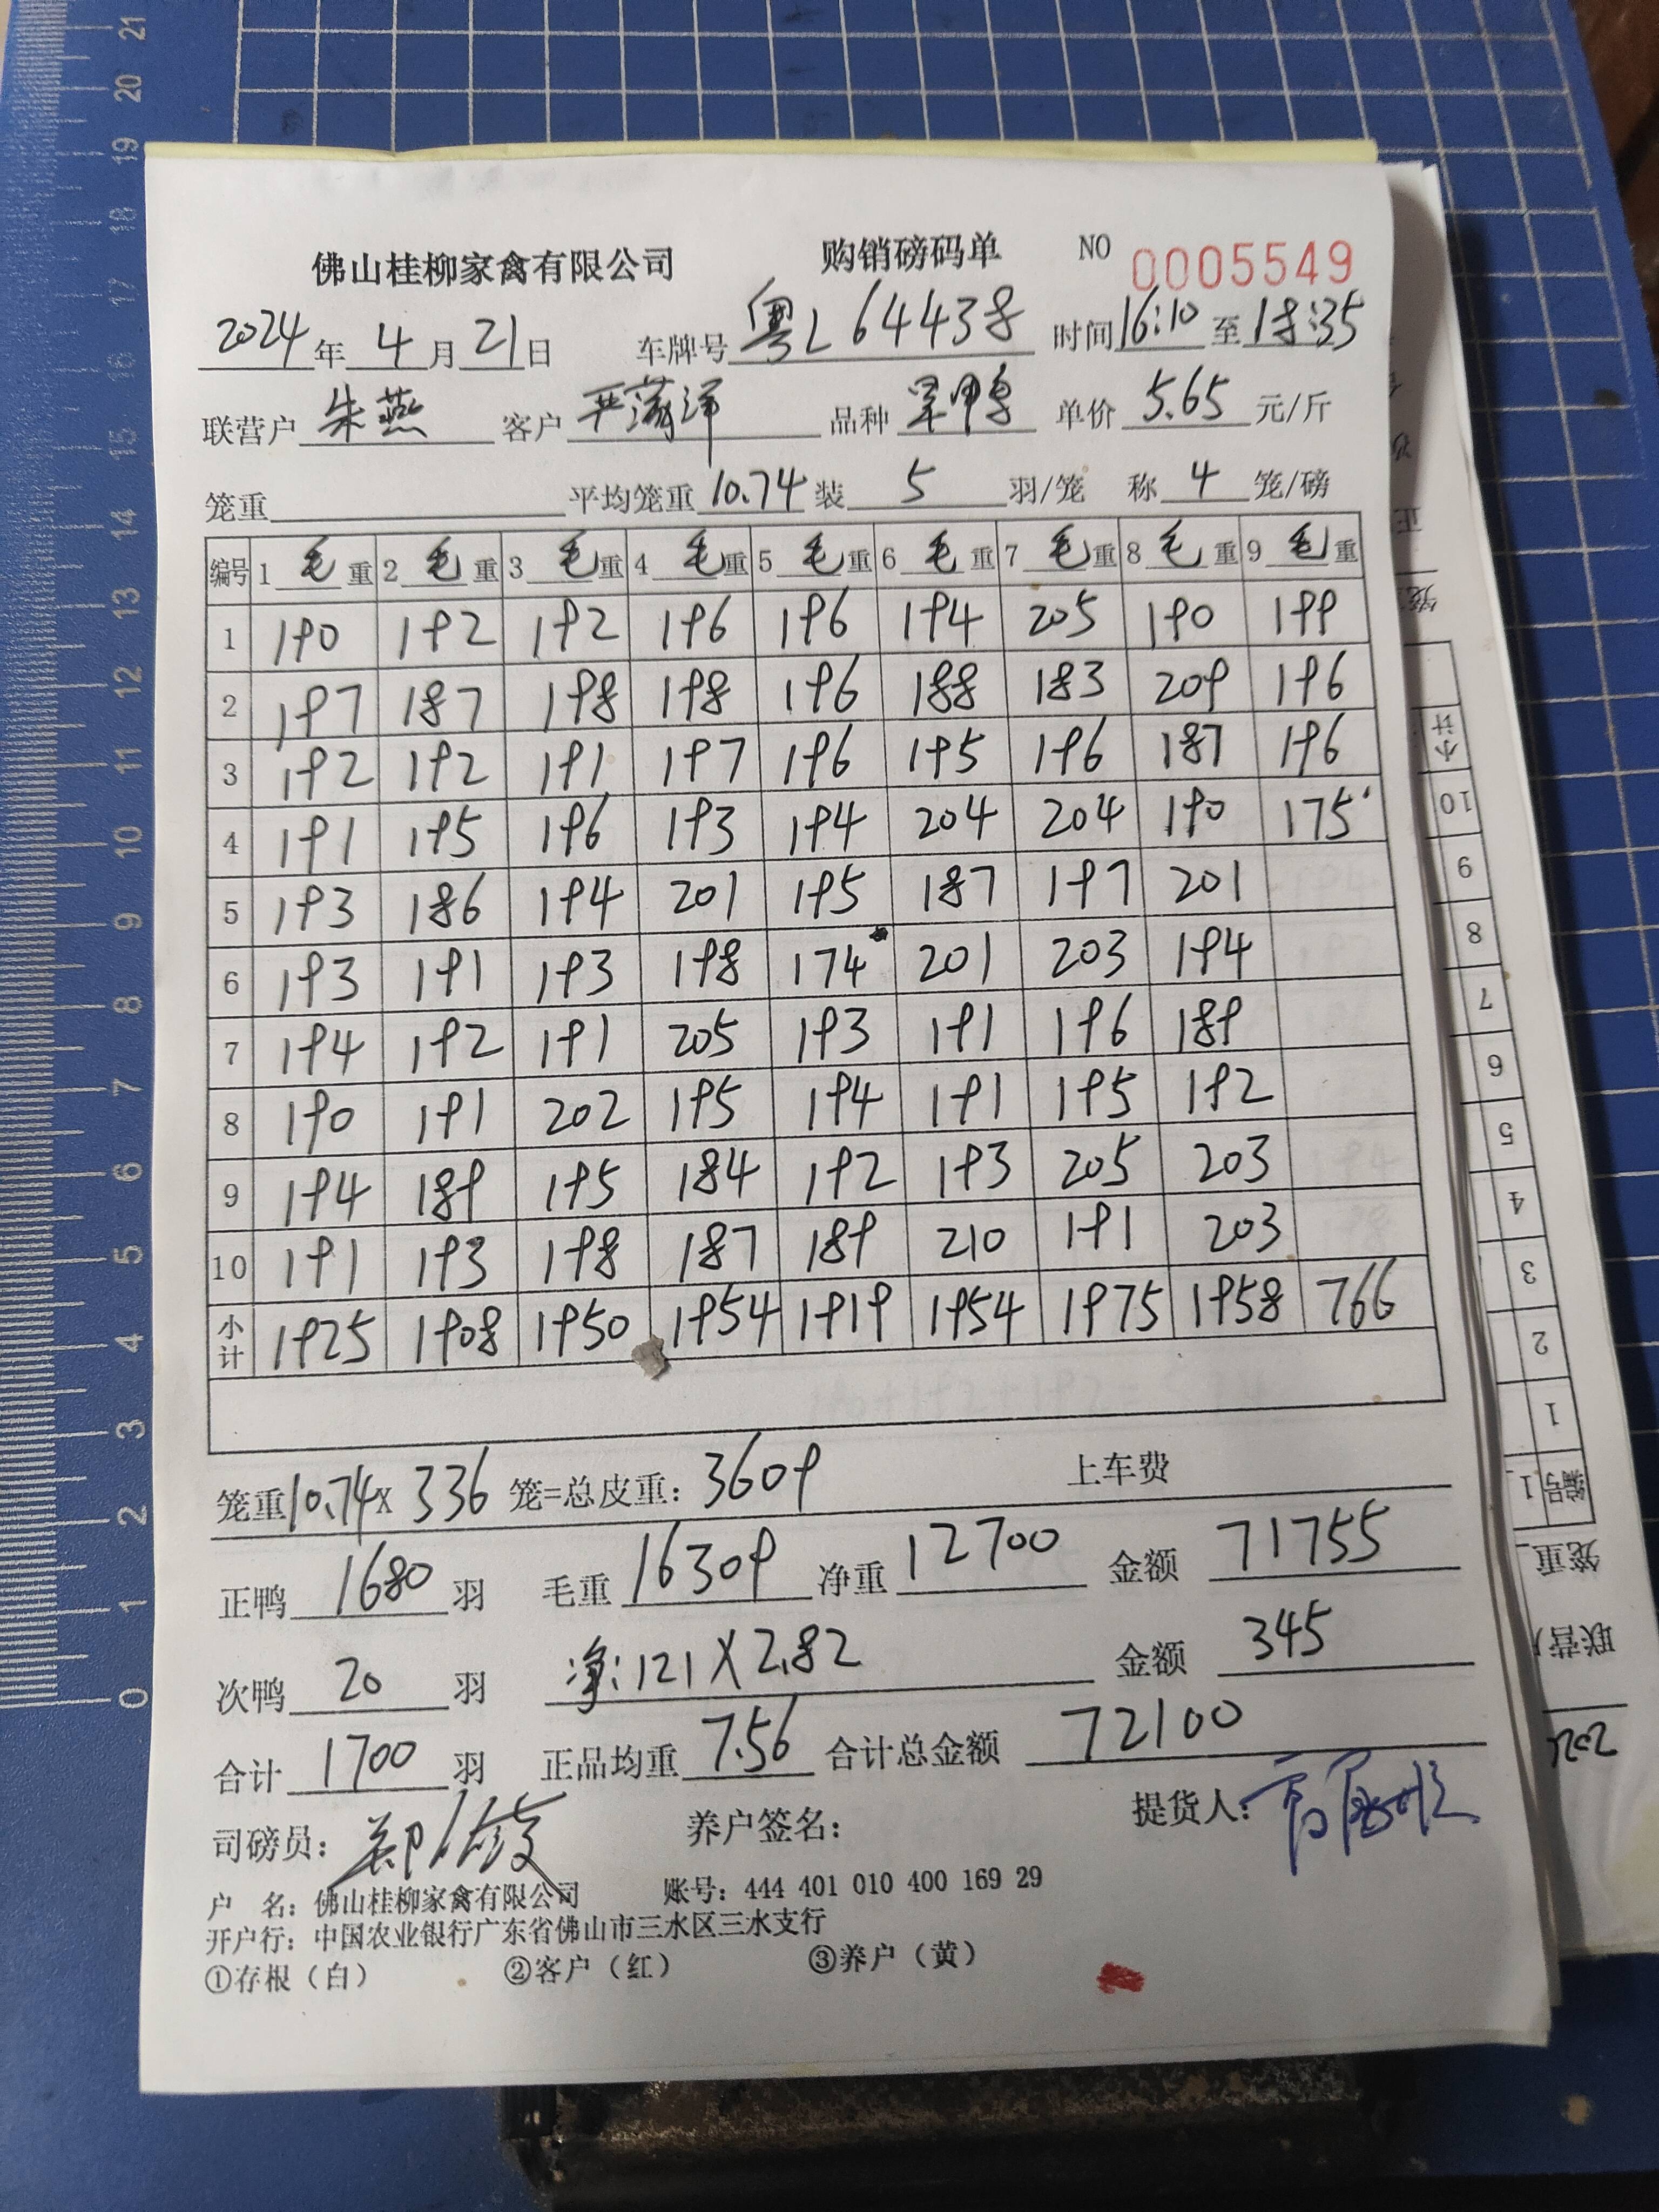 佛山桂柳家禽有限公司 购销磅码单 NO 0005549
2024年 4月21日 车牌号 粤L64438 时间16:10至18:35
联营户 朱燕 客户 品种 单价 5.65 元/斤
笼重 平均笼重 10.74 装 5 羽/笼 称 4 笼/磅
编号 1 毛重 2 毛重 3 毛重 4 毛重 5 毛重 6 毛重 7 毛重 8 毛重 9 毛重
1 190 192 192 196 196 194 205 190 199
2 197 187 198 198 196 188 183 209 196
3 192 192 191 197 196 195 196 187 196
4 191 195 196 193 194 204 204 190 175
5 193 186 194 201 195 187 197 201
6 193 191 193 198 174 201 203 194
7 194 192 191 205 193 191 196 189
8 190 191 202 195 194 191 195 192
9 194 189 195 184 192 193 205 203
10 191 193 198 187 189 210 191 203
小计 1925 1908 1950 1954 1919 1954 1975 1958 766
笼重10.74X 336 笼=总皮重: 3609 上车费
正鸭 1680 羽 毛重 16309 净重 12700 金额 71755
次鸭 20 羽 净:121X2.82 金额 345
合计 1700 羽 正品均重 7.56 合计总金额 72100
司磅员: 养户签名: 提货人:
户 名: 佛山桂柳家禽有限公司 账号: 444 401 010 400 169 29
开户行: 中国农业银行广东省佛山市三水区三水支行
①存根(白) ②客户(红) ③养户(黄)